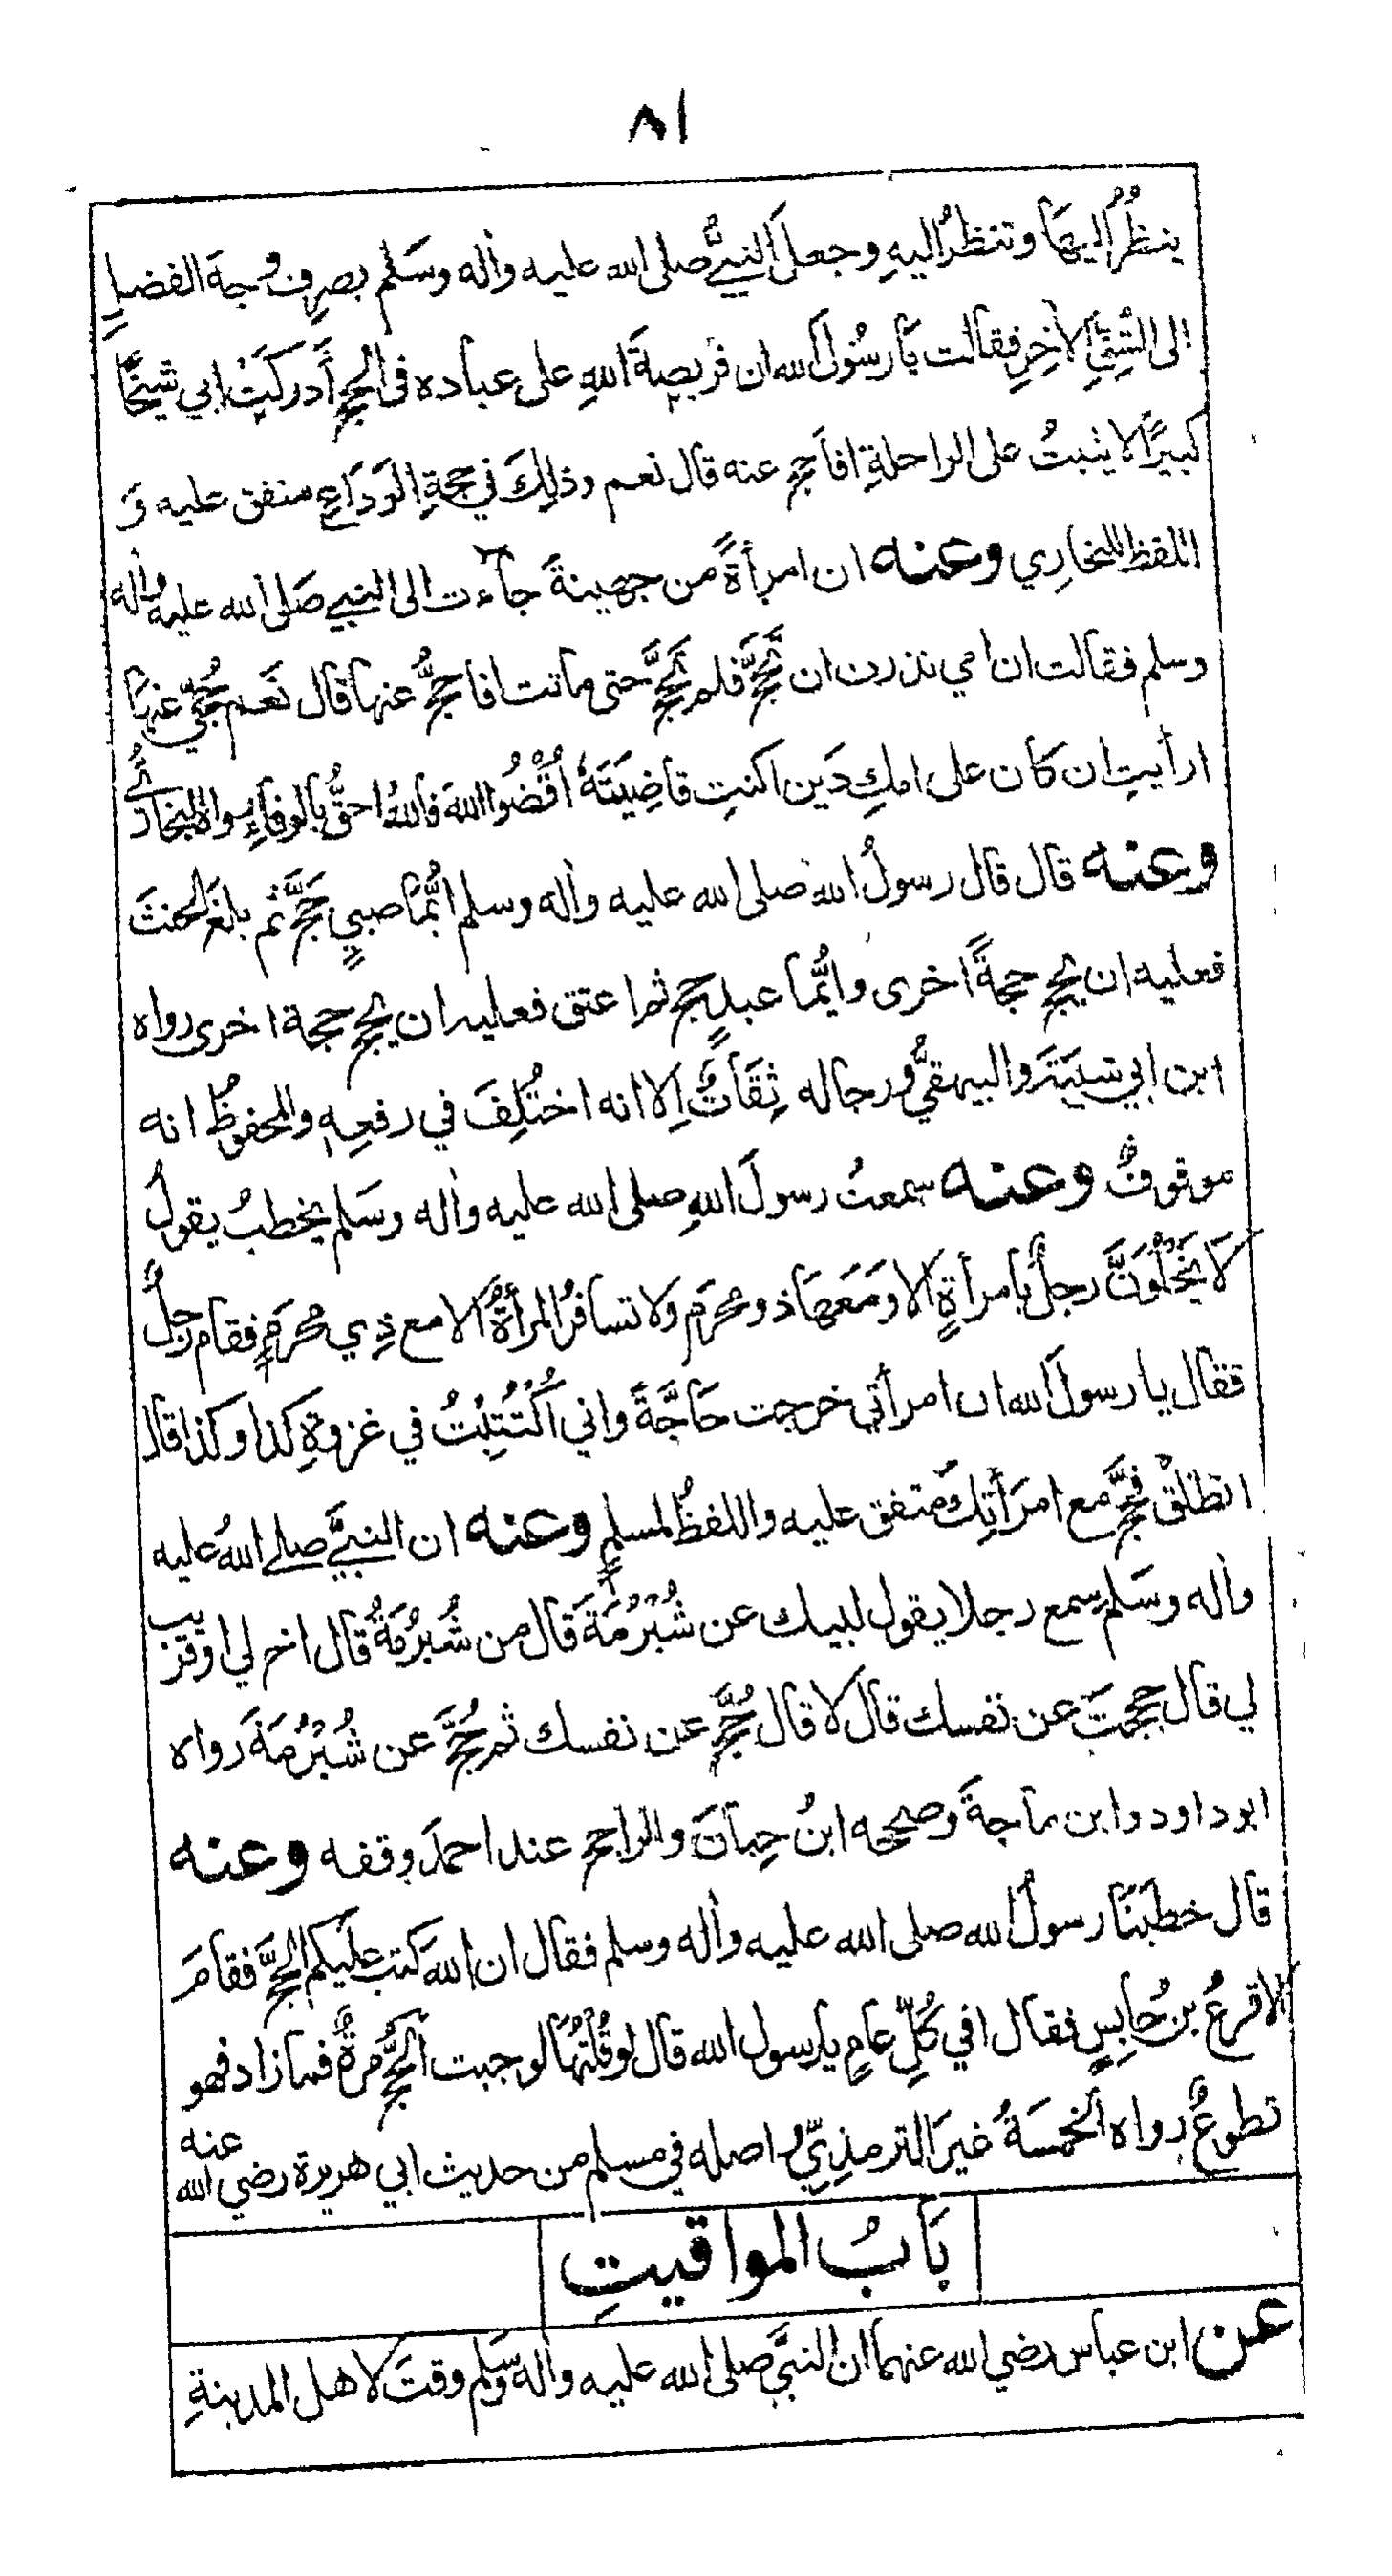 ٨١
ينظُرُ اليهَا وتنظرُ اليهِ وجعلَ النبيُّ صلى الله عليه واٰله وسَلم يصرِف وجهَ الفضلِ
الى الشِقِّ الاٰخِرِ فقالت يَا رسُولَ الله ان فريضةَ اللهِ على عباده فى الحجِ أدركَتْ ابي شيخًا
كبيرًا لا يثبتُ على الراحلةِ افاَحج عنه قال نعم وذٰلِكَ في حجةِ الوَدَاعِ متفق عليه وَ
اللفظ للبخارِي وعنه ان امرأةً من جهينةَ جآءت الى النبيِ صَلى الله عليه واٰله
وسلم فقالت ان امي نذرت ان تحجَّ فلم تحجَّ حتى ماتت افاحجُّ عنها قال نَعَم حُجِّي عنها
ارأيتِ ان كان على امكِ دَين اكنتِ قاضِيَتَهٗ اُقْضُوا اللهَ فاللهُ احقُّ بالوفاءِ رواهُ البخارُّي
وعنه قال قال رسولُ الله صلى الله عليه واٰله وسلم ايُّمَا صبيٍ حَجَّ ثم بلغَ الحنثَ
فعليه ان يحج حجةً اخرى وايُّما عبدٍ حج ثم اعتق فعليه ان يحج حجة اخرى رواه
ابن ابي شيبَةَ والبيهقيُّ ورجاله ثِقَاتٌ اِلا انه اختُلِفَ في رفعِهٖ والمحفوظُ انه
موقوفٌ وعنه سمعتُ رسولَ اللهِ صلى الله عليه واٰله وسَلم يخطبُ يقولُ
لَا يَخْلُوَنَّ رجلٌ بامرأةٍ الا ومَعَهَا ذو محرَم ولا تسافرُ المرأةُ الا مع ذِي محرَمٍ فقام رجلٌ
فقال يا رسولَ الله ان امرأتي خرجت حَاجَّةً واني اُكْتُتِبْتُ في غزوةِ كذا وكذا قال
انطلِقْ فحجَّ مع امرَأَتِكَ متفق عليه واللفظُ لمسلمٍ وعنه ان النبيَّ صلے اللهُ عليه
واٰله وسَلم سمع رجلا يقول لبيك عن شُبْرُمَةَ قَال من شُبرُمَةُ قال اخ لي او قريب
لي قال حججتَ عن نفسك قال لا قال حُجَّ عن نفسك ثم حُجَّ عن شُبْرُمَةَ رواه
ابو داود وابن ماجةَ وصححه ابنُ حِبانَ والراجح عند احمدَ وقفه وعنه
قال خطبَنَا رسولُ الله صلى الله عليه واٰله وسلم فقال ان اللهَ كتب عليكم الحجَّ فقامَ
الاقرعُ بن حُابِسٍ فقال افي كُلِّ عامٍ يا رسول الله قال لو قُلْتُهَا لوجبت الحجُّ مرةٌ فما زاد فهو
تطوعٌ رواه الخمسَةُ غيرَ الترمذِيِّ واصله في مسلم من حديث ابي هريرة رضي الله عنه
بَابُ المواقيتِ
عن ابن عباس رضي الله عنهما ان النبيَّ صلى الله عليه واٰله وسَلم وقتَ لاهل المدينةِ